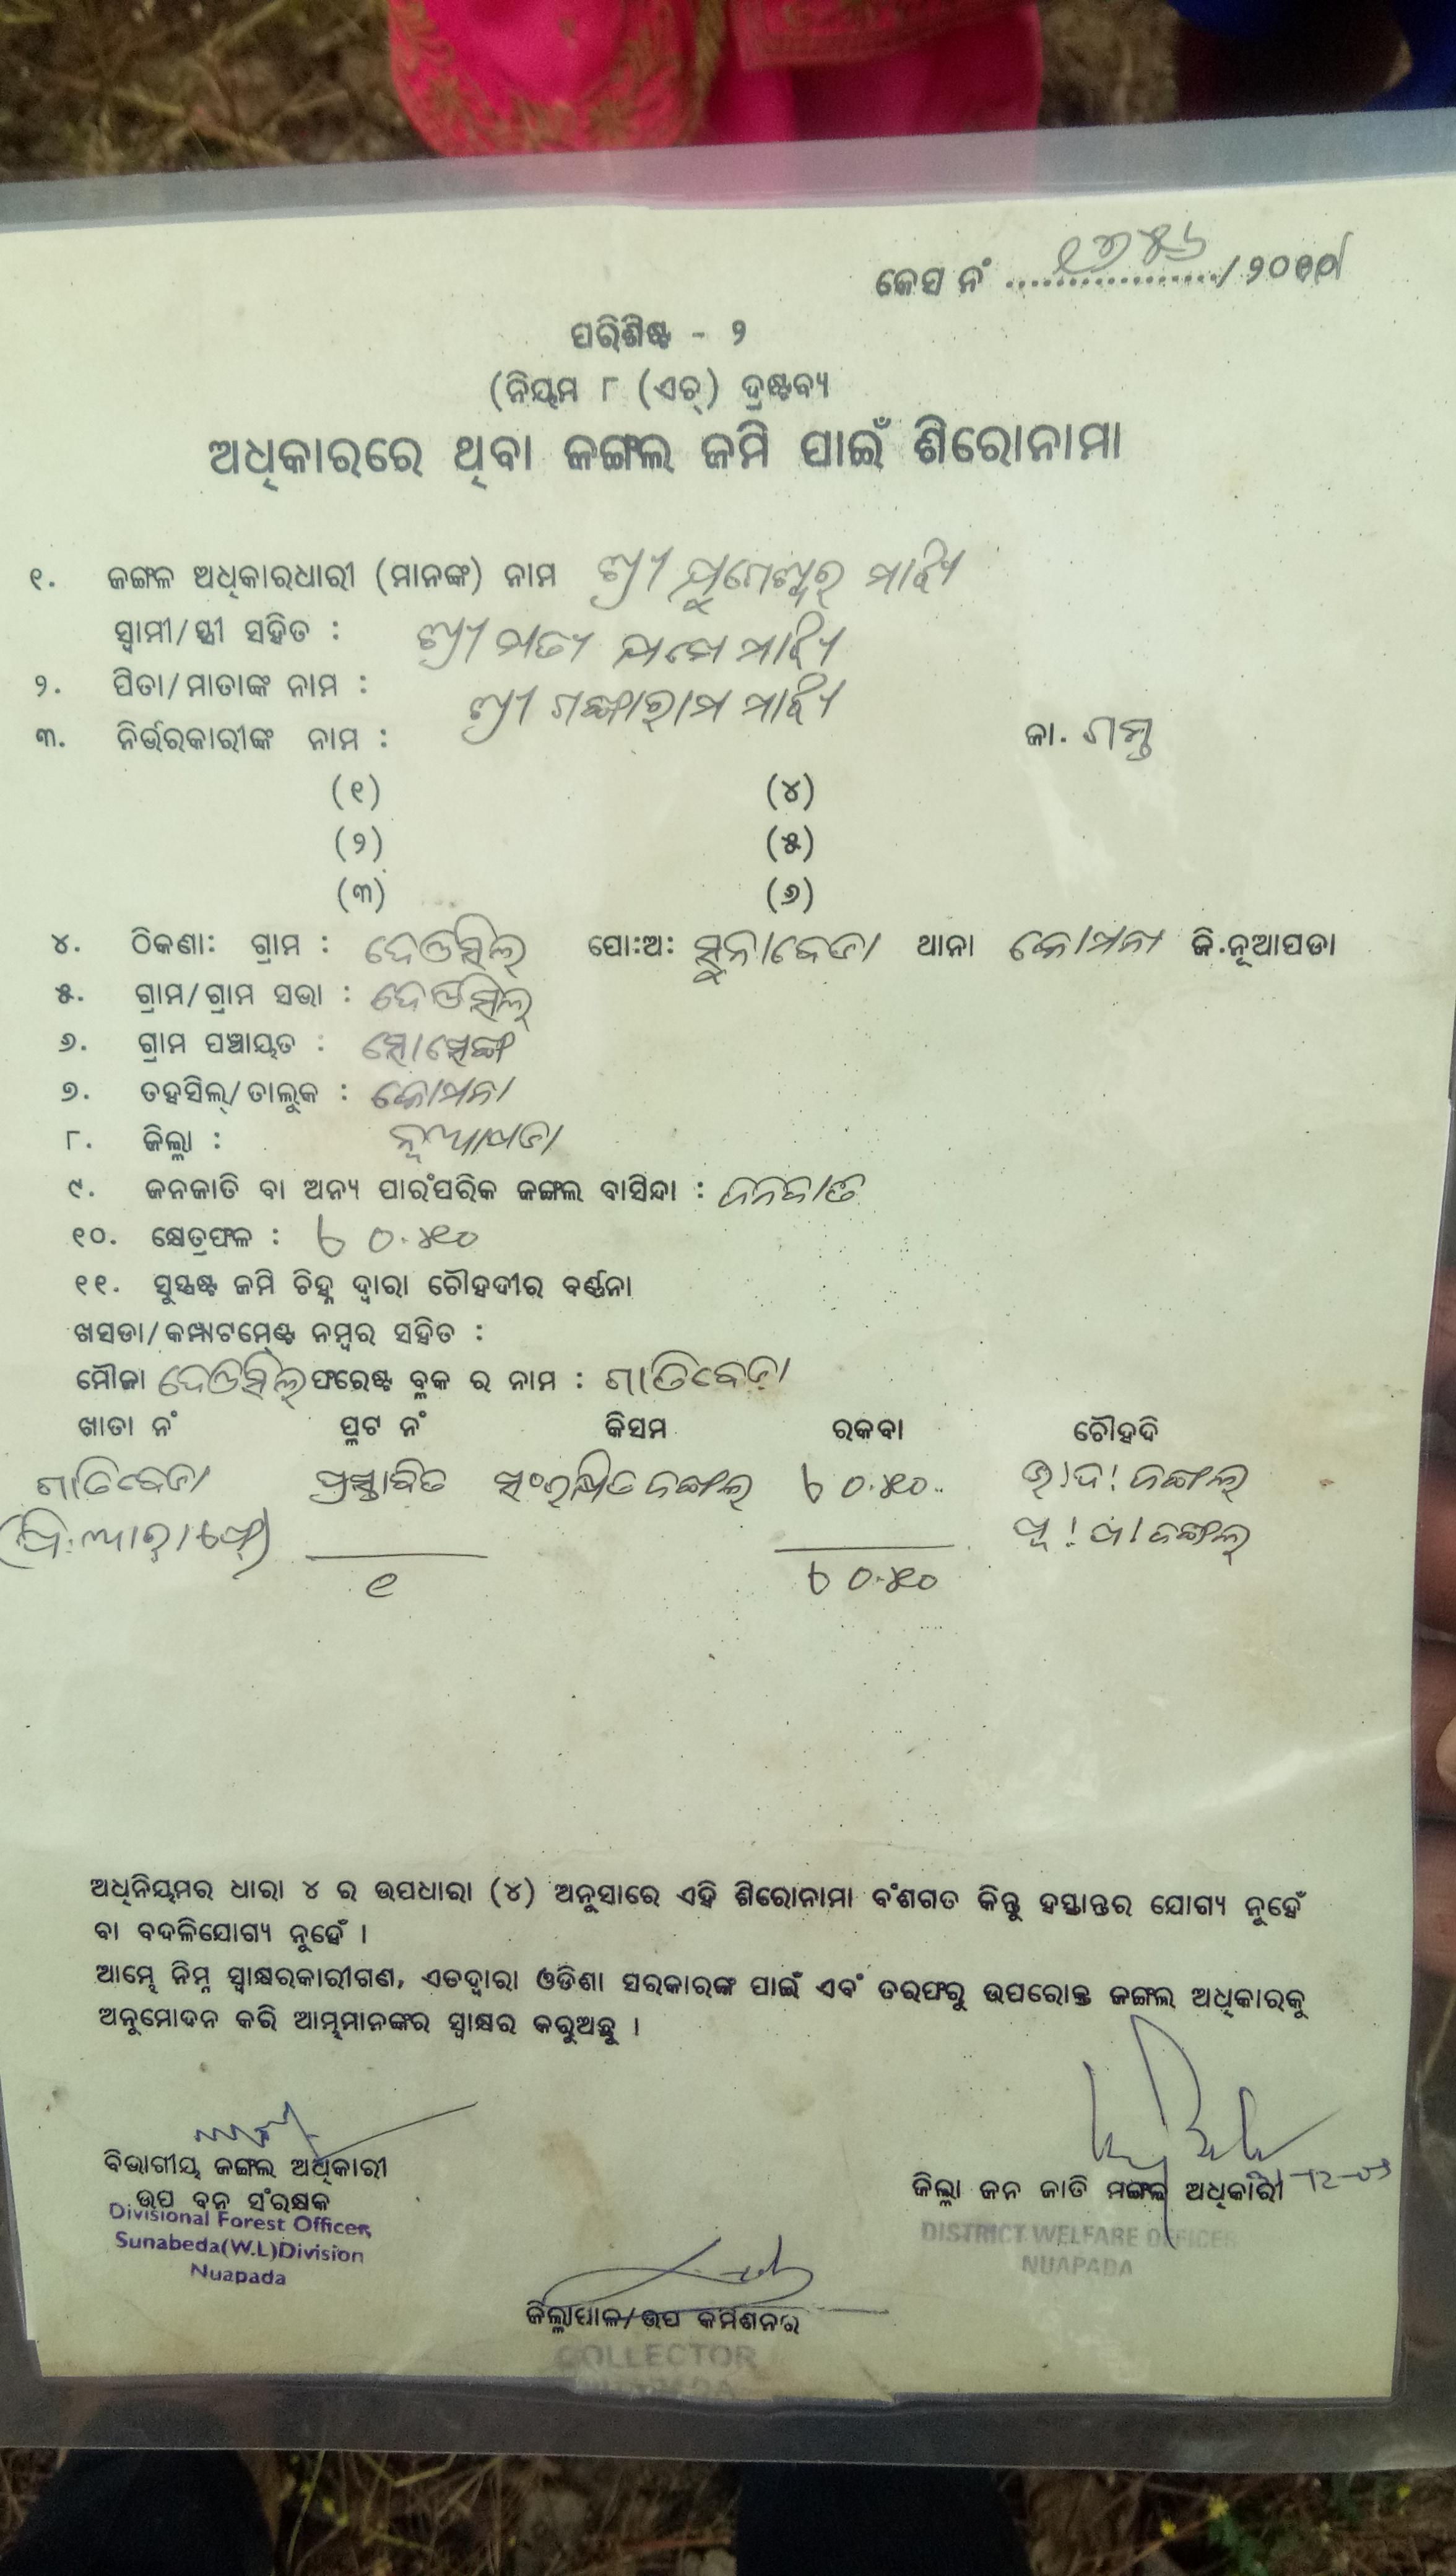 କେସ ନଂ ................/ ୨୦୧୦
ପରିଶିଷ୍ଟ - ୨
(ନିୟମ ୮ (ଏଚ୍) ଦ୍ରଷ୍ଟବ୍ୟ
ଅଧିକାରରେ ଥିବା ଜଙ୍ଗଲ ଜମି ପାଇଁ ଶିରୋନାମା
୧. ଜଙ୍ଗଳ ଅଧିକାରଧାରୀ (ମାନଙ୍କ) ନାମ ଶ୍ରୀ ମାଝି
ସ୍ଵାମୀ/ସ୍ତ୍ରୀ ସହିତ : ଶ୍ରୀମତୀ ମାଝି
୨. ପିତା/ମାତାଙ୍କ ନାମ : ଶ୍ରୀ ଗଙ୍ଗାରାମ ମାଝି
୩. ନିର୍ଭରକାରୀଙ୍କ ନାମ : ଜା. ଗଣ୍ଡ
(୧) (୪)
(୨) (୫)
(୩) (୬)
୪. ଠିକଣା: ଗ୍ରାମ : ଦେଓସିଲ୍ ପୋ:ଅ: ସୁନାବେଡା ଥାନା କୋମନା ଜି.ନୂଆପଡା
୫. ଗ୍ରାମ/ଗ୍ରାମ ସଭା : ଦେଓସିଲ୍
୬. ଗ୍ରାମ ପଞ୍ଚାୟତ : ସୋସେଙ୍ଗ
୭. ତହସିଲ୍/ତାଲୁକ : କୋମନା
୮. ଜିଲ୍ଲା : ନୂଆପଡା
୯. ଜନଜାତି ବା ଅନ୍ୟ ପାରଂପରିକ ଜଙ୍ଗଲ ବାସିନ୍ଦା : ଜନଜାତି
୧୦. କ୍ଷେତ୍ରଫଳ : ୦.୪୧୦
୧୧. ସୁସ୍ପଷ୍ଟ ଜମି ଚିହ୍ନ ଦ୍ଵାରା ଚୌହଦୀର ବର୍ଣ୍ଣନା
ଖସଡା/କମ୍ପାଟମେଣ୍ଟ ନମ୍ବର ସହିତ :
ମୌଜା ଦେଓସିଲ୍ ଫରେଷ୍ଟ ବ୍ଲକ ର ନାମ : ଗାତିବେଡା
ଖାତା ନଂ ପ୍ଲଟ ନଂ କିସମ ରକବା ଚୌହଦି
ଗାତିବେଡା ପ୍ରସ୍ତାବିତ ସଂରକ୍ଷିତ ଜଙ୍ଗଲ୍ ୦.୪୧୦ ଉ/ଦ! ଜଙ୍ଗଲ୍
(ପି.ଆର୍.ଏଫ୍) ପୂ! ପ। ଜଙ୍ଗଲ୍
୧ ୦.୪୧୦
ଅଧିନିୟମର ଧାରା ୪ ର ଉପଧାରା (୪) ଅନୁସାରେ ଏହି ଶିରୋନାମା ବଂଶଗତ କିନ୍ତୁ ହସ୍ତାନ୍ତର ଯୋଗ୍ୟ ନୁହେଁ
ବା ବଦଳିଯୋଗ୍ୟ ନୁହେଁ ।
ଆମ୍ଭେ ନିମ୍ନ ସ୍ଵାକ୍ଷରକାରୀଗଣ, ଏତଦ୍ଵାରା ଓଡିଶା ସରକାରଙ୍କ ପାଇଁ ଏବଂ ତରଫରୁ ଉପରୋକ୍ତ ଜଙ୍ଗଲ ଅଧିକାରକୁ
ଅନୁମୋଦନ କରି ଆମ୍ଭମାନଙ୍କର ସ୍ଵାକ୍ଷର କରୁଅଛୁ ।
ବିଭାଗୀୟ ଜଙ୍ଗଲ ଅଧିକାରୀ
ଉପ ବନ ସଂରକ୍ଷକ
Divisional Forest Officer,
Sunabeda(W.L)Division
Nuapada
ଜିଲ୍ଲା ଜନ ଜାତି ମଙ୍ଗଳ ଅଧିକାରୀ
DISTRICT WELFARE OFFICER
NUAPADA
ଜିଲ୍ଲାପାଳ/ଉପ କମିଶନର
COLLECTOR
NUAPADA